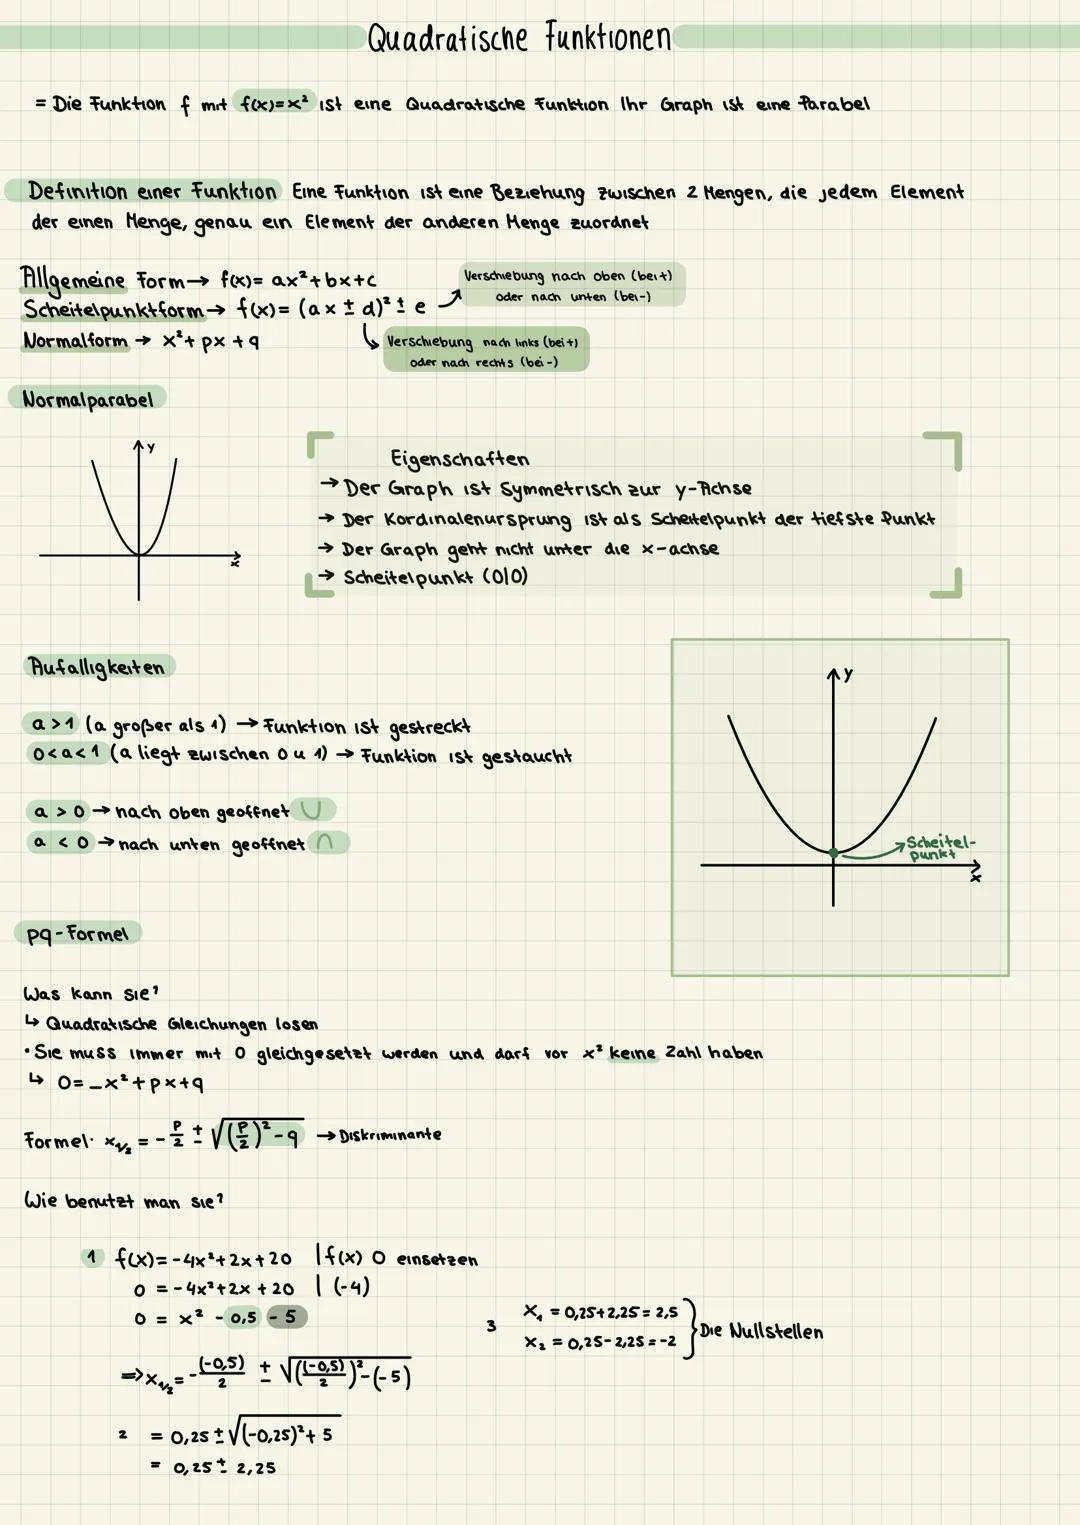 Quadratische Funktionen
= Die Funktion f mit f(x)=x² ist eine Quadratische Funktion Ihr Graph ist eine Parabel
Definition einer Funktion Eine Funktion ist eine Beziehung zwischen 2 Mengen, die jedem Element
der einen Menge, genau ein Element der anderen Menge zuordnet
Allgemeine Form→ f(x)= ax²+bx+c
Verschiebung nach oben (bei+)
oder nach unten (bei-)
Scheitelpunktform→ f(x)= (ax ± d)² ± e
Normalform → x²+ px +q
Verschiebung nach links (bei+)
oder nach rechts (bei-)
Normalparabel
y
x
Eigenschaften
→ Der Graph ist Symmetrisch zur y-Achse
→ Der Kordinalenursprung ist als Scheitelpunkt der tiefste Punkt
→ Der Graph geht nicht unter die x-achse
→ Scheitelpunkt (0|0)
Aufalligkeiten
a>1 (a großer als 1) → Funktion ist gestreckt
0<a<1 (a liegt zwischen 0 u 1) → Funktion ist gestaucht
a > 0 → nach oben geoffnet ∪
a < 0 → nach unten geoffnet ∩
y
Scheitel-
punkt
x
pq-Formel
Was kann sie?
↳ Quadratische Gleichungen losen
• Sie muss immer mit 0 gleichgesetzt werden und darf vor x² keine Zahl haben
↳ 0= _x²+px+q
Formel· x₁/₂ = -p/2 ± √((p/2)²-q) → Diskriminante
Wie benutzt man sie?
1 f(x)= -4x²+2x+20 | f(x) 0 einsetzen
0 = -4x²+2x +20 | (-4)
0 = x² -0,5 -5
⇒x₁/₂= -(-0,5)/2 ± √(((-0,5)/2)²-(-5))
2 = 0,25 ± √((-0,25)²+ 5)
= 0,25 ± 2,25
3 x₁ = 0,25+2,25 = 2,5
x₂ = 0,25-2,25 = -2
} Die Nullstellen